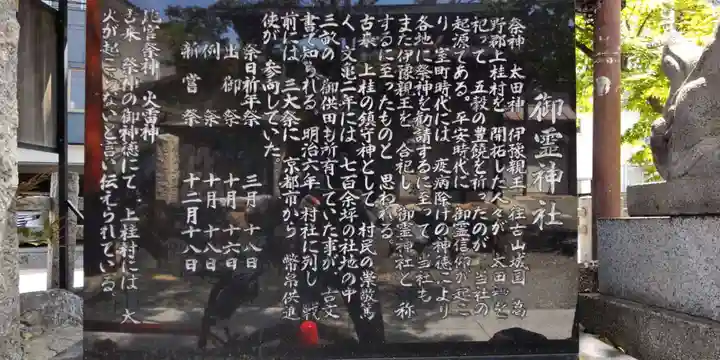 御霊神社
祭神 太田神 伊豫親王 往古山城国 葛
野郡上桂村を 開拓した人々が 太田神を
祀って 五穀の豊饒を祈ったのが 当社の
起源である。平安時代に 御霊信仰が起こ
り 室町時代には 疫病除けの神徳により
各地に祭神を勧請するに至って 当社も
また伊豫親王を 合祀し 御霊神社と 称
するに至ったものと 思われる。
古来 上桂の鎮守神として 村民の崇敬篤
く 文亀二年には 七百余坪の社地の中
三畝の 御供田も所有していた事が 古文
書で知られる。明治六年 村社に列し 戦
前には 三大祭に 京都市から 幣帛供進
使が 参向していた。
祭日祈年祭 三月十八日
出御祭 十月十六日
例祭 十月十八日
新嘗祭 十二月十八日
此宮祭神 火雷神
古来 祭神の御神徳にて 上桂村には 大
火が起こらないと言い伝えられている。